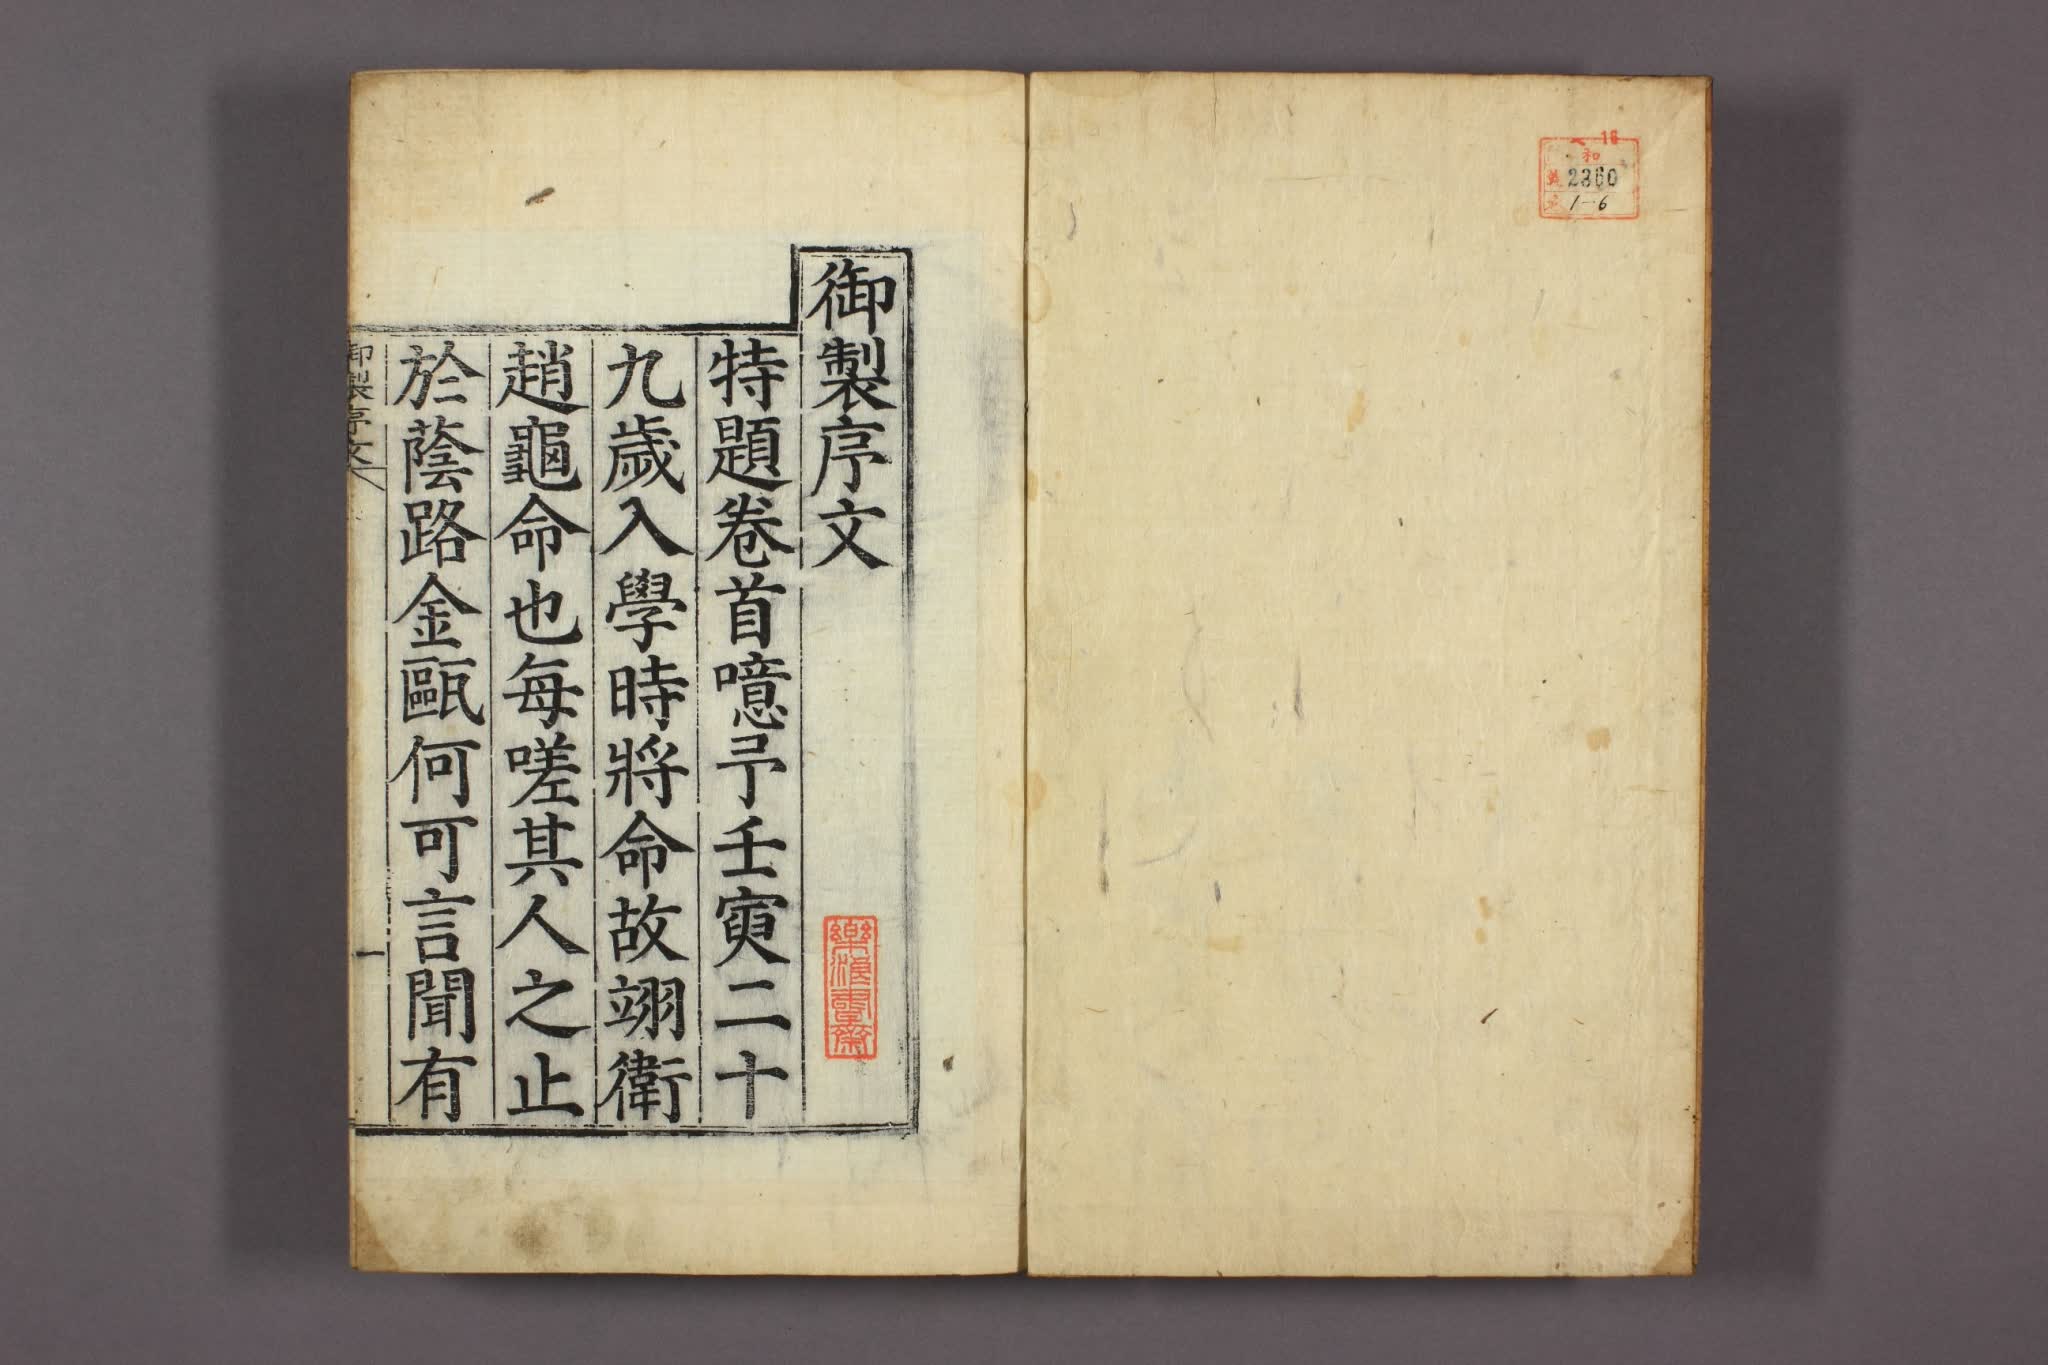 16
和
2360
1-6
御製序文
特題卷首噫予壬寅二十
九歲入學時將命故翊衛
趙龜命也每嗟其人之止
於蔭路金甌何可言聞有
御製序文
一
樂浪書齋